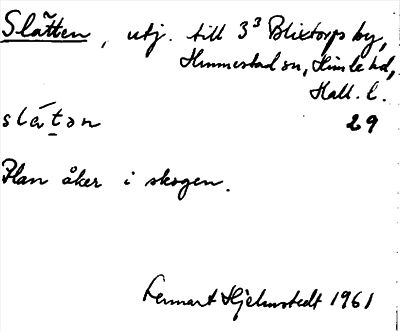 Slätten, utj. till 3³ Blixtorps by,
Himmestad sn, Himle hd,
Hall. l.
slátən 29
Plan åker i skogen.
Lennart Hjelmstedt 1961